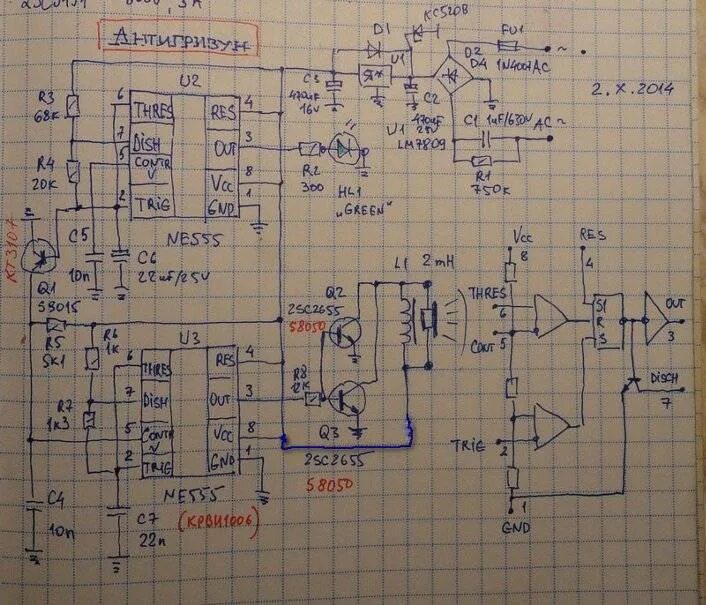 АНТИГРИЗУН
2.X.2014
KC520B
D1
FU1
U1
D2
D4
1N4007
AC ~
C3
470uF
16V
C2
470uF
25V
U1
LM7809
C1 1uF/630V
AC ~
R1
750K
U2
R3
68K
6
THRES
RES
4
7
DISH
OUT
3
R2
300
HL1
„GREEN"
R4
20K
5
CONTR
V
Vcc
8
2
TRIG
GND
1
NE555
КТ3107
Q1
S9015
C5
10n
C6
22uF/25V
R5
5K1
R6
1K
R7
1K3
U3
6
THRES
RES
4
7
DISH
OUT
3
5
CONTR
V
Vcc
8
2
TRIG
GND
1
NE555
(КРВИ1006)
C4
10n
C7
22n
R8
12K
Q2
2SC2655
S8050
Q3
2SC2655
S8050
L1
2mH
Vcc
8
RES
4
THRES
6
CONT
5
S1
R
S
OUT
3
DISCH
7
TRIG
2
1
GND